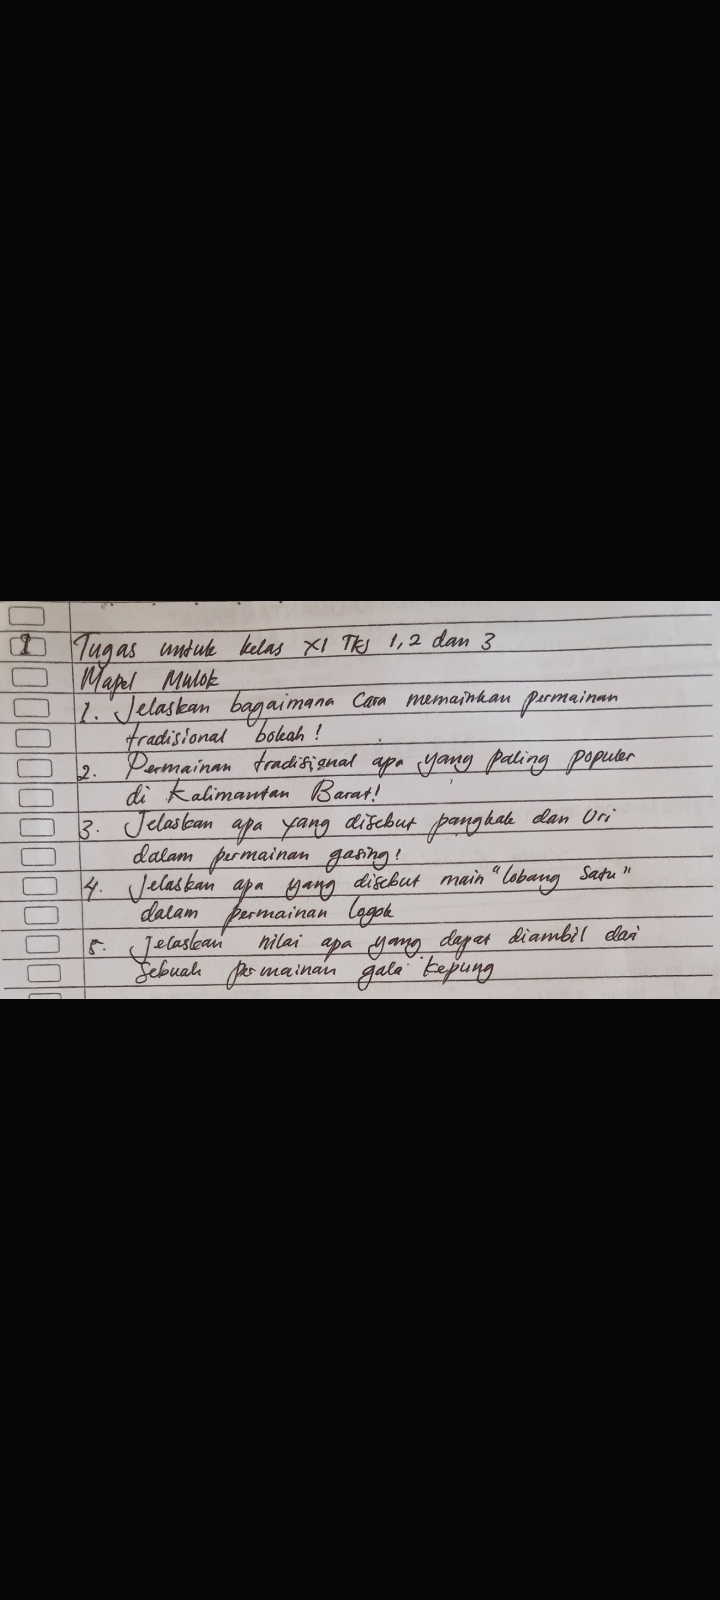 1 Tugas untuk kelas XI TKJ 1,2 dan 3
Mapel Mulok
1. Jelaskan bagaimana cara memainkan permainan
tradisional bokah!
2. Permainan tradisional apa yang paling populer
di Kalimantan Barat!
3. Jelaskan apa yang disebut pangkak dan Uri
dalam permainan gasing!
4. Jelaskan apa yang disebut main "lobang satu"
dalam permainan logok
5. Jelaskan nilai apa yang dapat diambil dari
sebuah permainan gala kepung